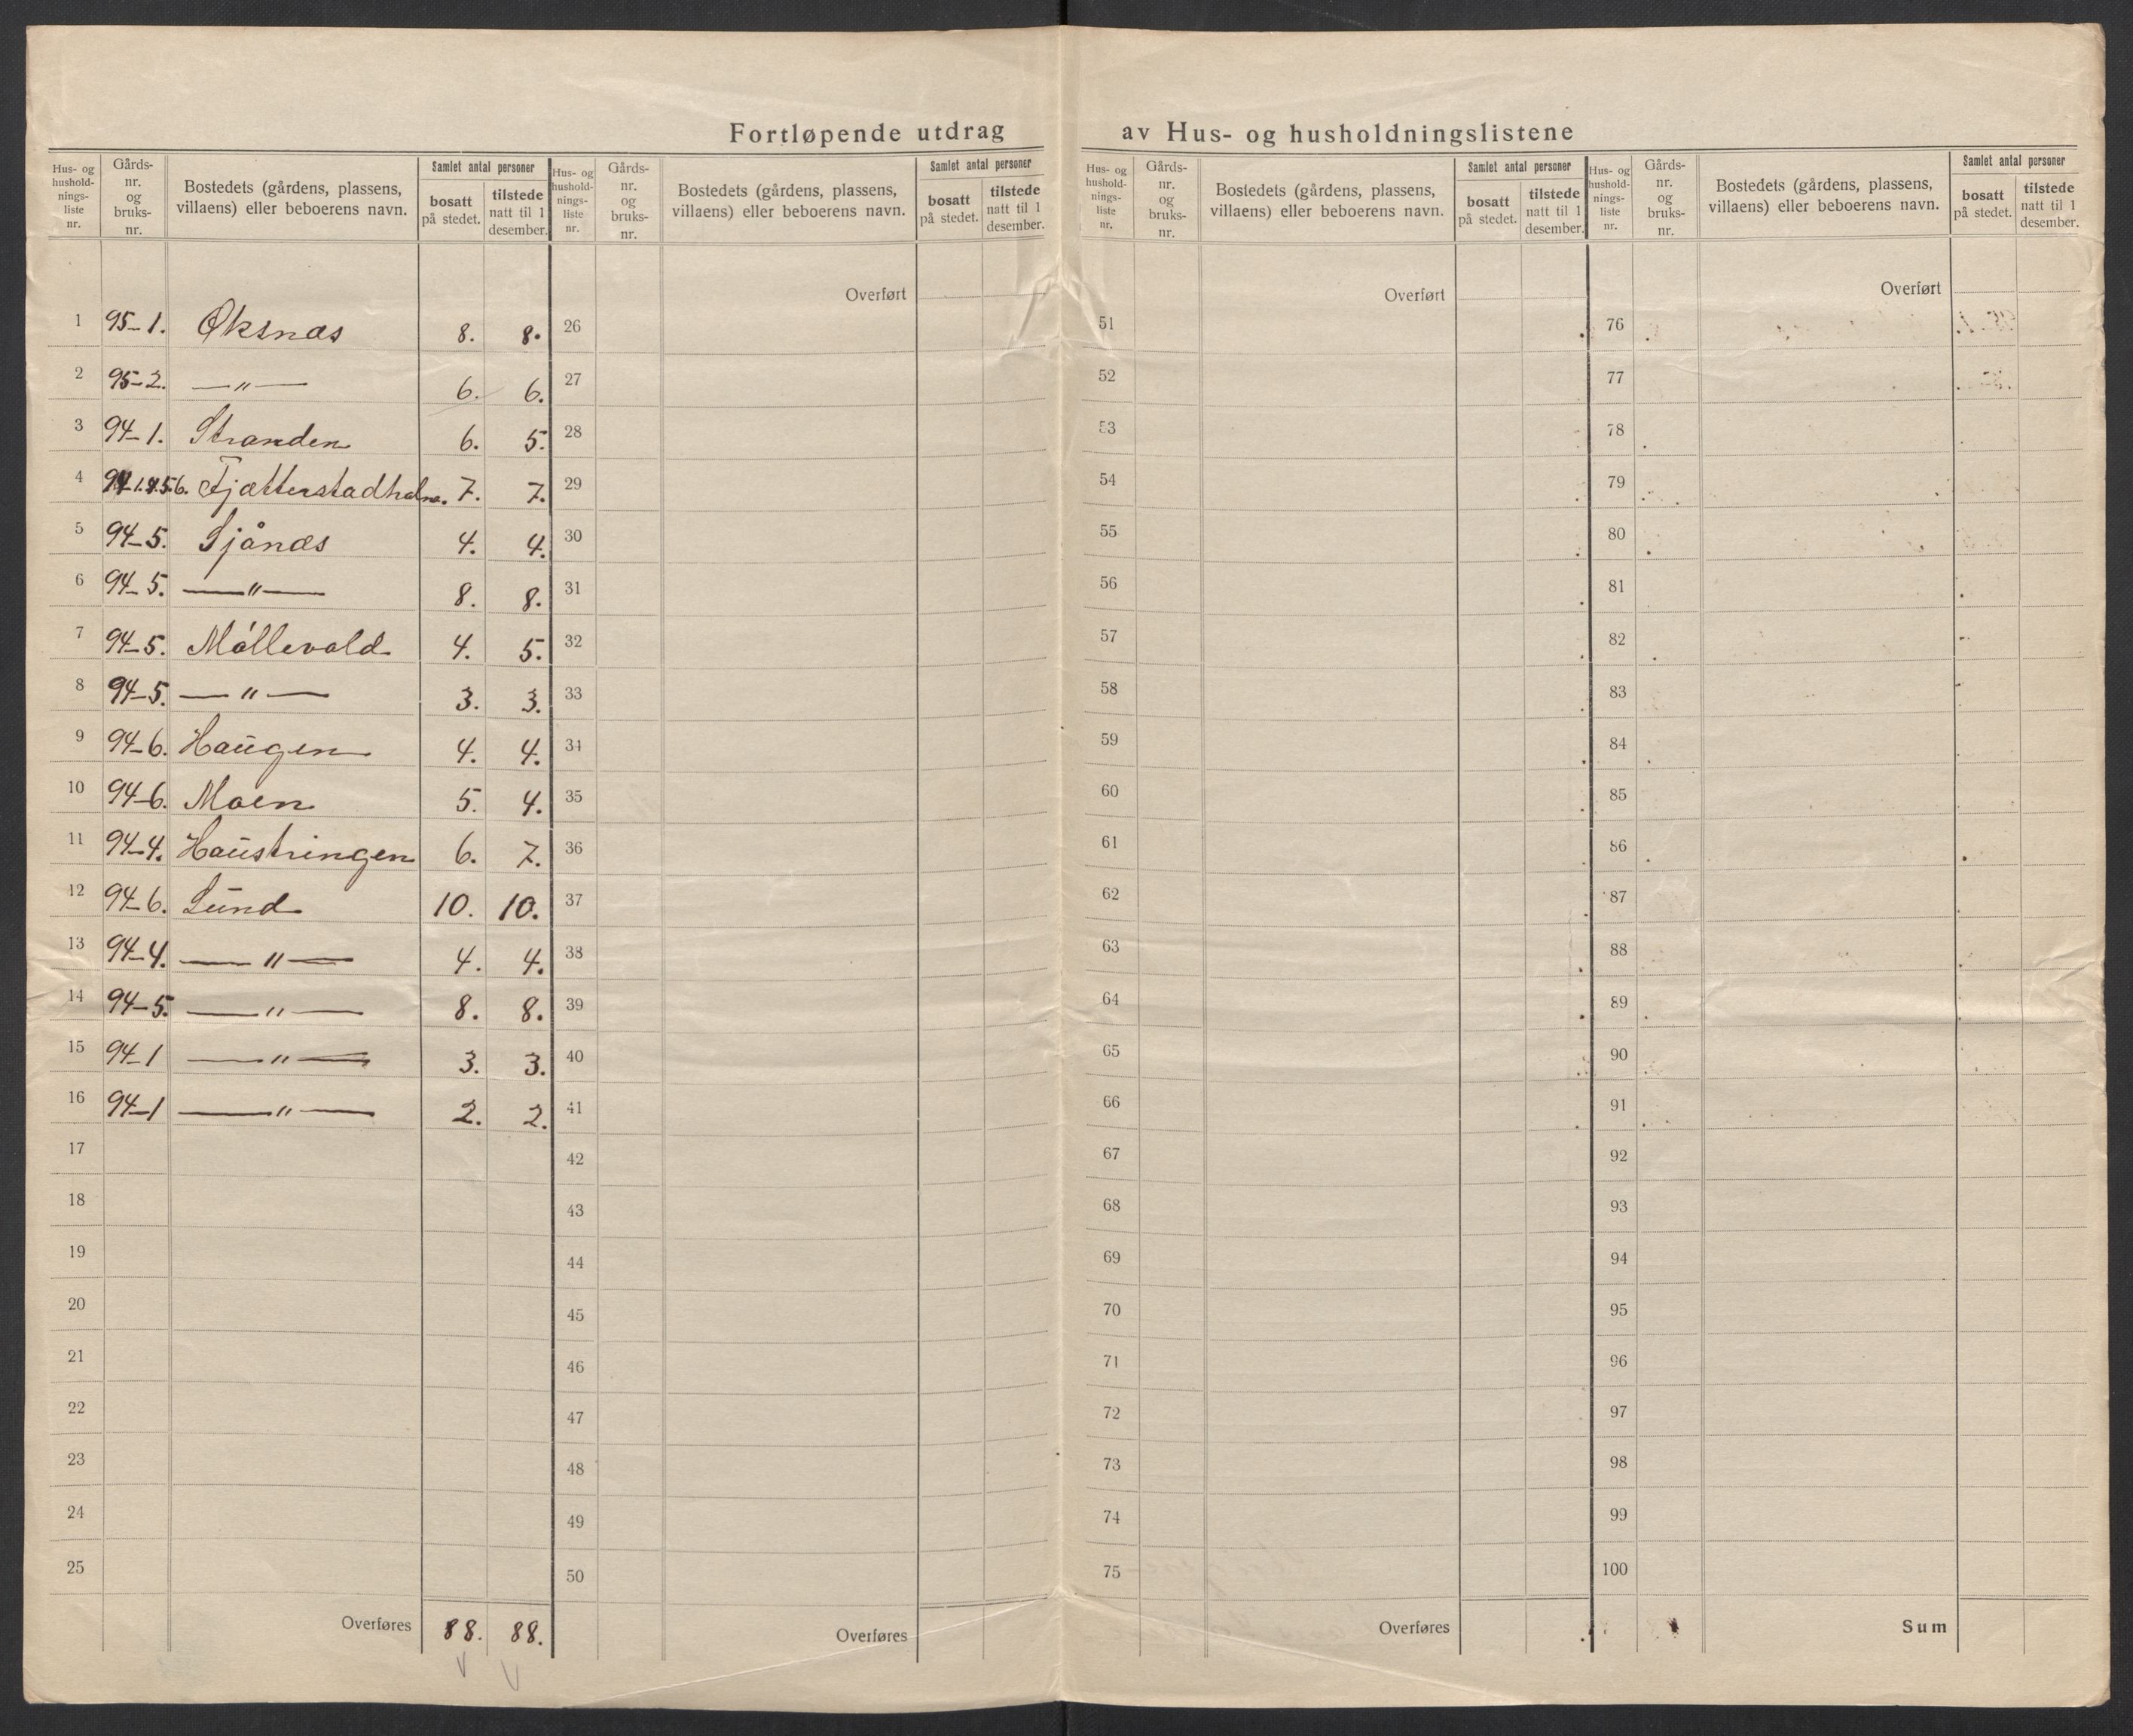 Fortløpende utdrag av Hus- og husholdningslistene
Hus- og hushold- nings- liste nr. Gårds- nr. og bruks- nr. Bostedets (gårdens, plassens, villaens) eller beboerens navn. Samlet antal personer bosatt på stedet. tilstede natt til 1 desember.
Hus- og hushold- nings- liste nr. Gårds- nr. og bruks- nr. Bostedets (gårdens, plassens, villaens) eller beboerens navn. Samlet antal personer bosatt på stedet. tilstede natt til 1 desember.
Hus- og hushold- nings- liste nr. Gårds- nr. og bruks- nr. Bostedets (gårdens, plassens, villaens) eller beboerens navn. Samlet antal personer bosatt på stedet. tilstede natt til 1 desember.
Hus- og hushold- nings- liste nr. Gårds- nr. og bruks- nr. Bostedets (gårdens, plassens, villaens) eller beboerens navn. Samlet antal personer bosatt på stedet. tilstede natt til 1 desember.
Overført Overført Overført
1 95-1. Øksnæs 8. 8. 26 51 76
2 95-2. —"— 6. 6. 27 52 77
3 94-1. Stranden 6. 5. 28 53 78
4 94-1.4.5.6. Fjætterstadholm. 7. 7. 29 54 79
5 94-5. Sjånæs 4. 4. 30 55 80
6 94-5. —"— 8. 8. 31 56 81
7 94-5. Móllevold 4. 5. 32 57 82
8 94-5. —"— 3. 3. 33 58 83
9 94-6. Haugen 4. 4. 34 59 84
10 94-6. Moen 5. 4. 35 60 85
11 94-4. Haustringen 6. 7. 36 61 86
12 94-6. Lund 10. 10. 37 62 87
13 94-4. —"— 4. 4. 38 63 88
14 94-5. —"— 8. 8. 39 64 89
15 94-1 —"— 3. 3. 40 65 90
16 94-1 —"— 2. 2. 41 66 91
17 42 67 92
18 43 68 93
19 44 69 94
20 45 70 95
21 46 71 96
22 47 72 97
23 48 73 98
24 49 74 99
25 50 75 100
Overføres 88. 88. Overføres Overføres Sum